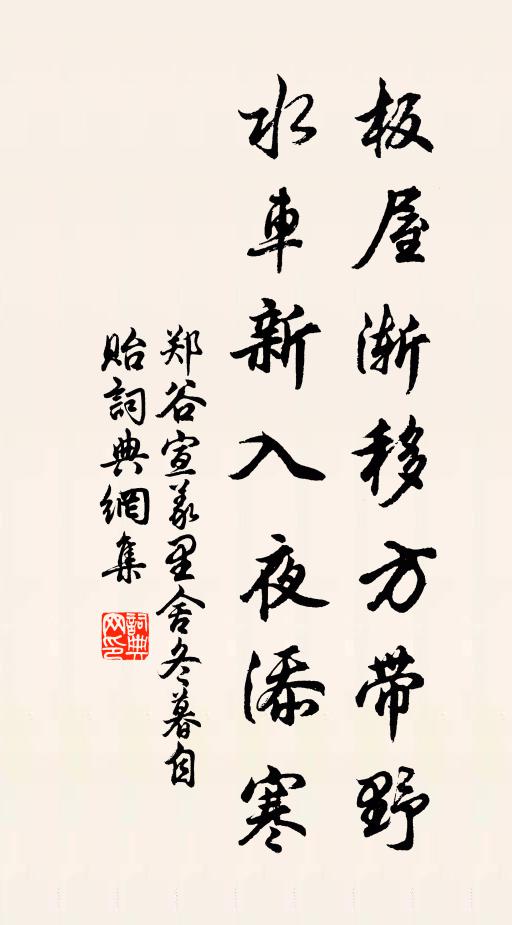 板屋渐移方带野
水車新入夜添寒
郑谷宣義里舍冬暮自
貽詞典網集
詞典
网印